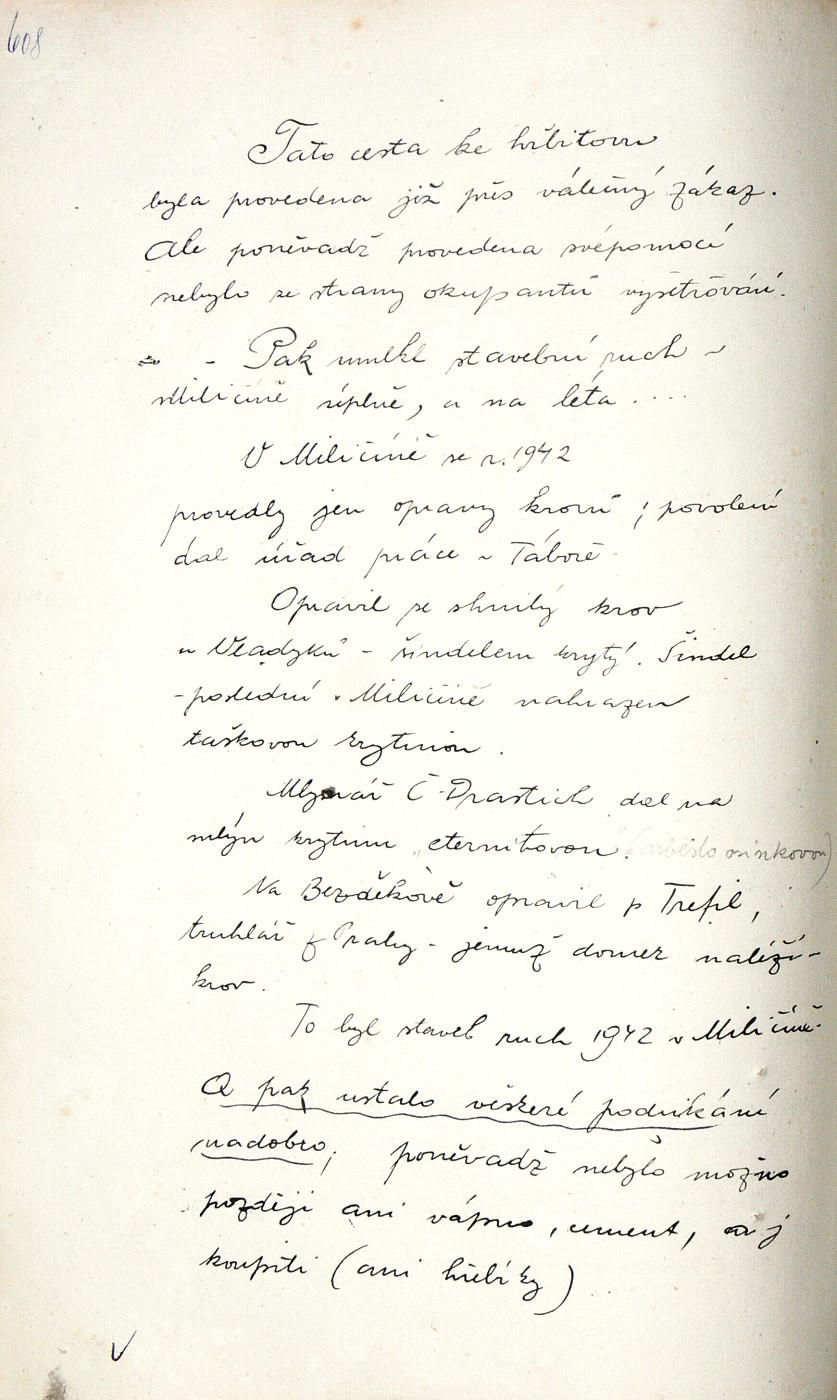 608
Tato cesta ke hřbitovu
byla provedena již přes válečný zákaz.
Ale poněvadž provedena svépomocí
nebylo ze strany okupantů vyšetřování.
- Pak umlkl stavební ruch v
Miličíně úplně, a na léta ....
V Miličíně se r. 1942
provedly jen opravy krovů ; povolení
dal úřad práce v Táboře
Opravil se shnilý krov
u Vladyků - šindelem krytý. Šindel
- poslední v Miličíně nahrazen
taškovou krytinou .
Mlynář Č. Drastich dal na
mlýn krytinu „eternitovou". (asbesto osinkovou)
Na Bezděkově opravil p Trefil,
truhlář z Prahy - jemuž domek náleží -
krov.
To byl staveb ruch 1942 v Miličíně.
A pak ustalo veškeré podnikání
nadobro, poněvadž nebylo možno
později ani vápno, cement, a j
koupiti (ani hřebíky)
V